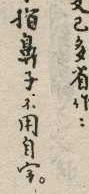 又已多有作：
指鼻子不用自字。